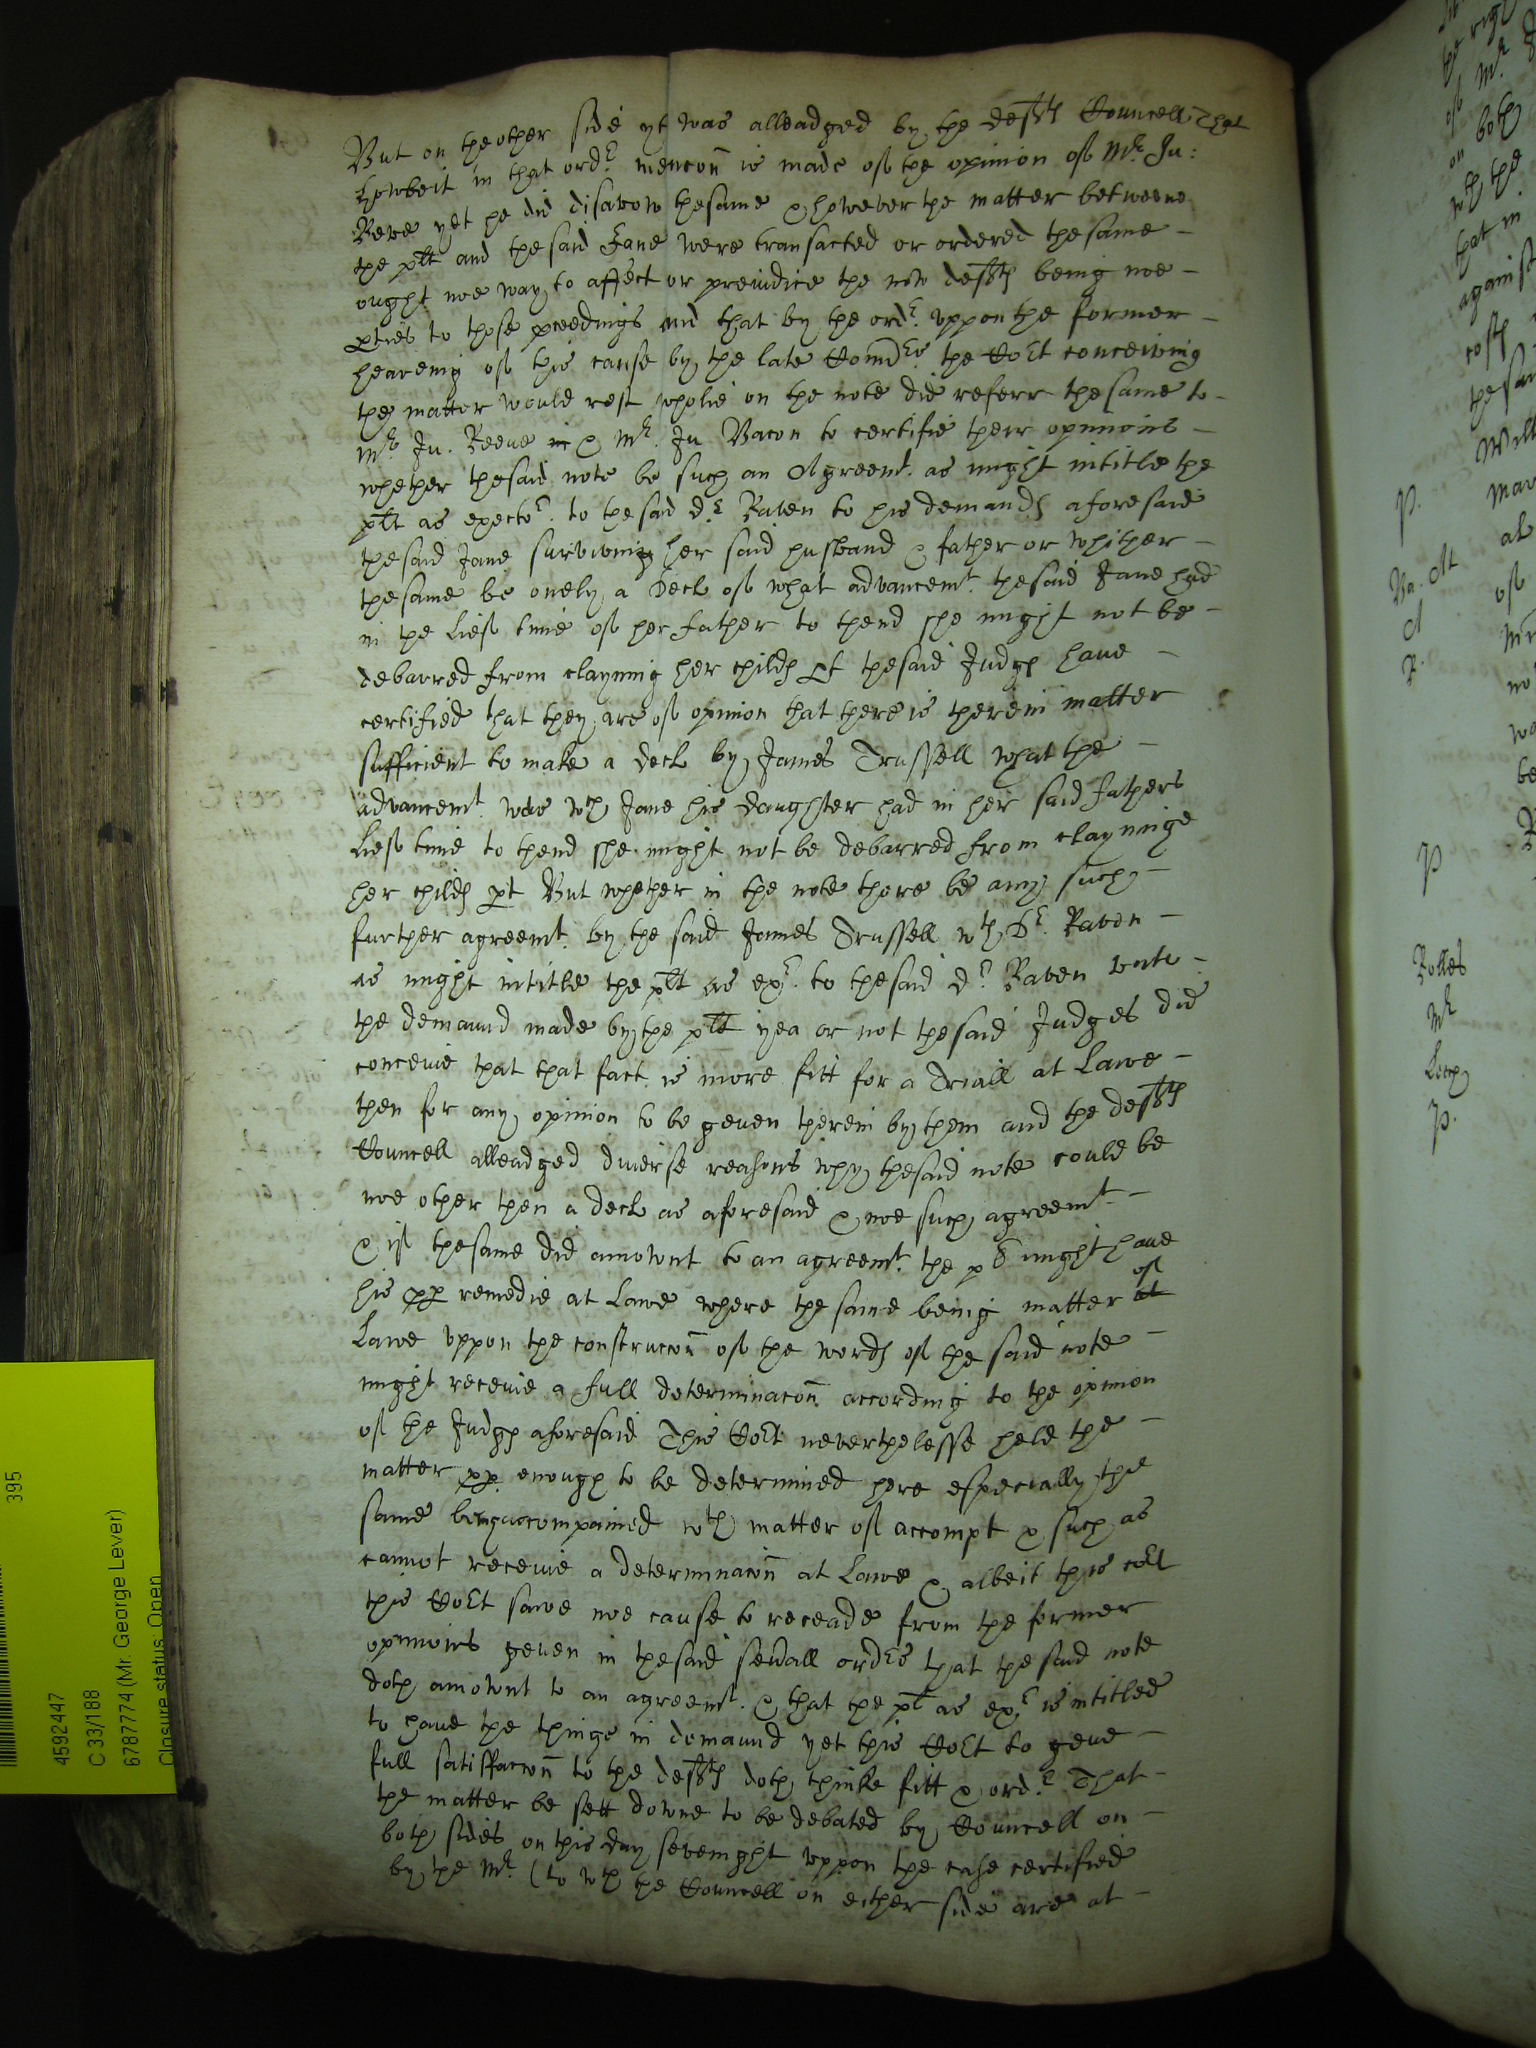 But on theother side yt was alleadged by the defts Councell That
howbeit in that ordr. mencon is made of the opinion of Mr. Ju:
Reve yet he did disavow thesame & however the matter betweene
the plt and thesaid Jane were transacted or ordered thesame -
ought noe way to affect or preiudice the now defts being noe -
pties to those pceedings and that by the ordr. uppon the former -
heareing of this cause by the late Comrs. the Cort conceiving
the matter would rest wholie on the note did referr thesame to -
Mr. Ju. Reeve & Mr. Ju Bacon to certifie their opinions -
whether thesaid note be such an Agreemt. as might intitle the
plt as exector. to thesaid Dr. Raven to his demands aforesaid
thesaid Jane surviving her said husband & father or whither -
thesame be onely a Decl of what advancemt. thesaid Jane had
in the lief time of her father to thend she might not be -
debarred from clayming her childs pt thesaid Judges have -
certified that they are of opinion that there is therein matter
sufficient to make a decl by James Trussell what the -
advancemt. was wch Jane his daughter had in her said fathers
lief time to thend she might not be debarred from clayminge
her childs pt But whether in the note there be any such -
further agreemt. by the said James Trussell wth Dr. Raven -
as might intitle the plt as exr. to thesaid Dr. Raven unto -
the demaund made by the plt yea or not thesaid Judges did
conceive that that fact is more fitt for a Triall at Lawe -
then for any opinion to be geven therein by them and the defts
Councell alleadged diverse reasons why thesaid note could be
noe other then a decl as aforesaid & noe such agreemt -
& if thesame did amount to an agreemt. the pl might have
his pp remedie at Lawe where the same being matter at of
Lawe uppon the construccon of the words of the said note -
might receive a full determinacon according to the opinion
of the Judges aforesaid This Cort neverthelesse held the -
matter pp. enough to be determined here especially the
same being accompained wth matter of accompt & such as
cannot receive a determinacon at Lawe & albeit this
this Cort sawe noe cause to receade from the former
opinions geven in thesaid sevall ordrs that the said note
doth amount to an agreemt. & that the plt as exr. is intitled
to have the things in demaund yet this Cort to geve -
full satisfaccon to the defts doth thinke fitt & ordr. That -
the matter be sett downe to be debated by Councell on -
both sides on this day sevenight uppon the case certified
by the Mr. (to wch the Councell on either side are at -
P.
Ra. At
A
P.
P
Rolles
Mr
P.
395
4592447
C 33/188
6787774 (Mr. George Lever)
Closure status: Open